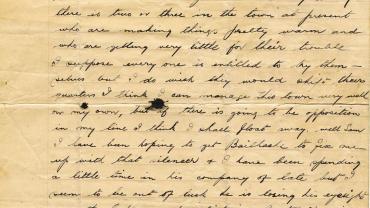 there is two or three in the town at present
who are making things pretty warm and
who are getting very little for their trouble
I suppose every one is entitled to try them-
selves but I do wish they would shift their
quarters I think I can manage this town very well
on my own, but if there is going to be opposition
in my line I think I shall float away. well Sam
I have been hoping to get to fix me
up with that silencer & I have been spending
a little time in his company of late but I
seem to be out of luck he is losing his eyesight